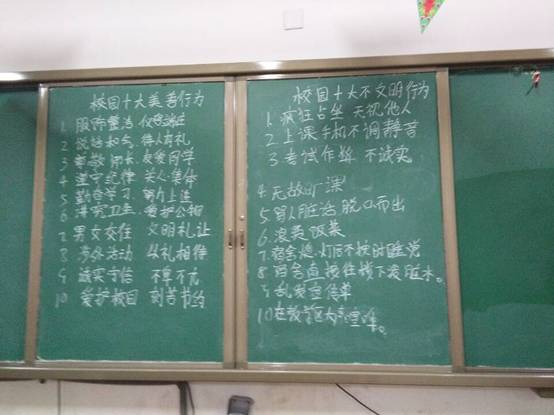 校园十大美善行为
1 服饰整洁 仪容端庄
2 说话和气 待人有礼
3 尊敬师长 友爱同学
4 遵守纪律 关心集体
5 勤奋学习 努力上进
6 讲究卫生 爱护公物
7 男女交往 文明礼让
8 务外活动 以礼相待
9 诚实守信 不卑不亢
10 爱护校园 刻苦节约
校园十大不文明行为
1. 疯狂占坐 无视他人
2 上课手机不调静音
3 考试作弊 不诚实
4. 无故旷课
5 骂人脏话 脱口而出
6. 浪费饭菜
7 宿舍熄灯后不按时睡觉
8 宿舍直接往楼下泼脏水。
9 乱发宣传单
10 在教学区大声喧哗。